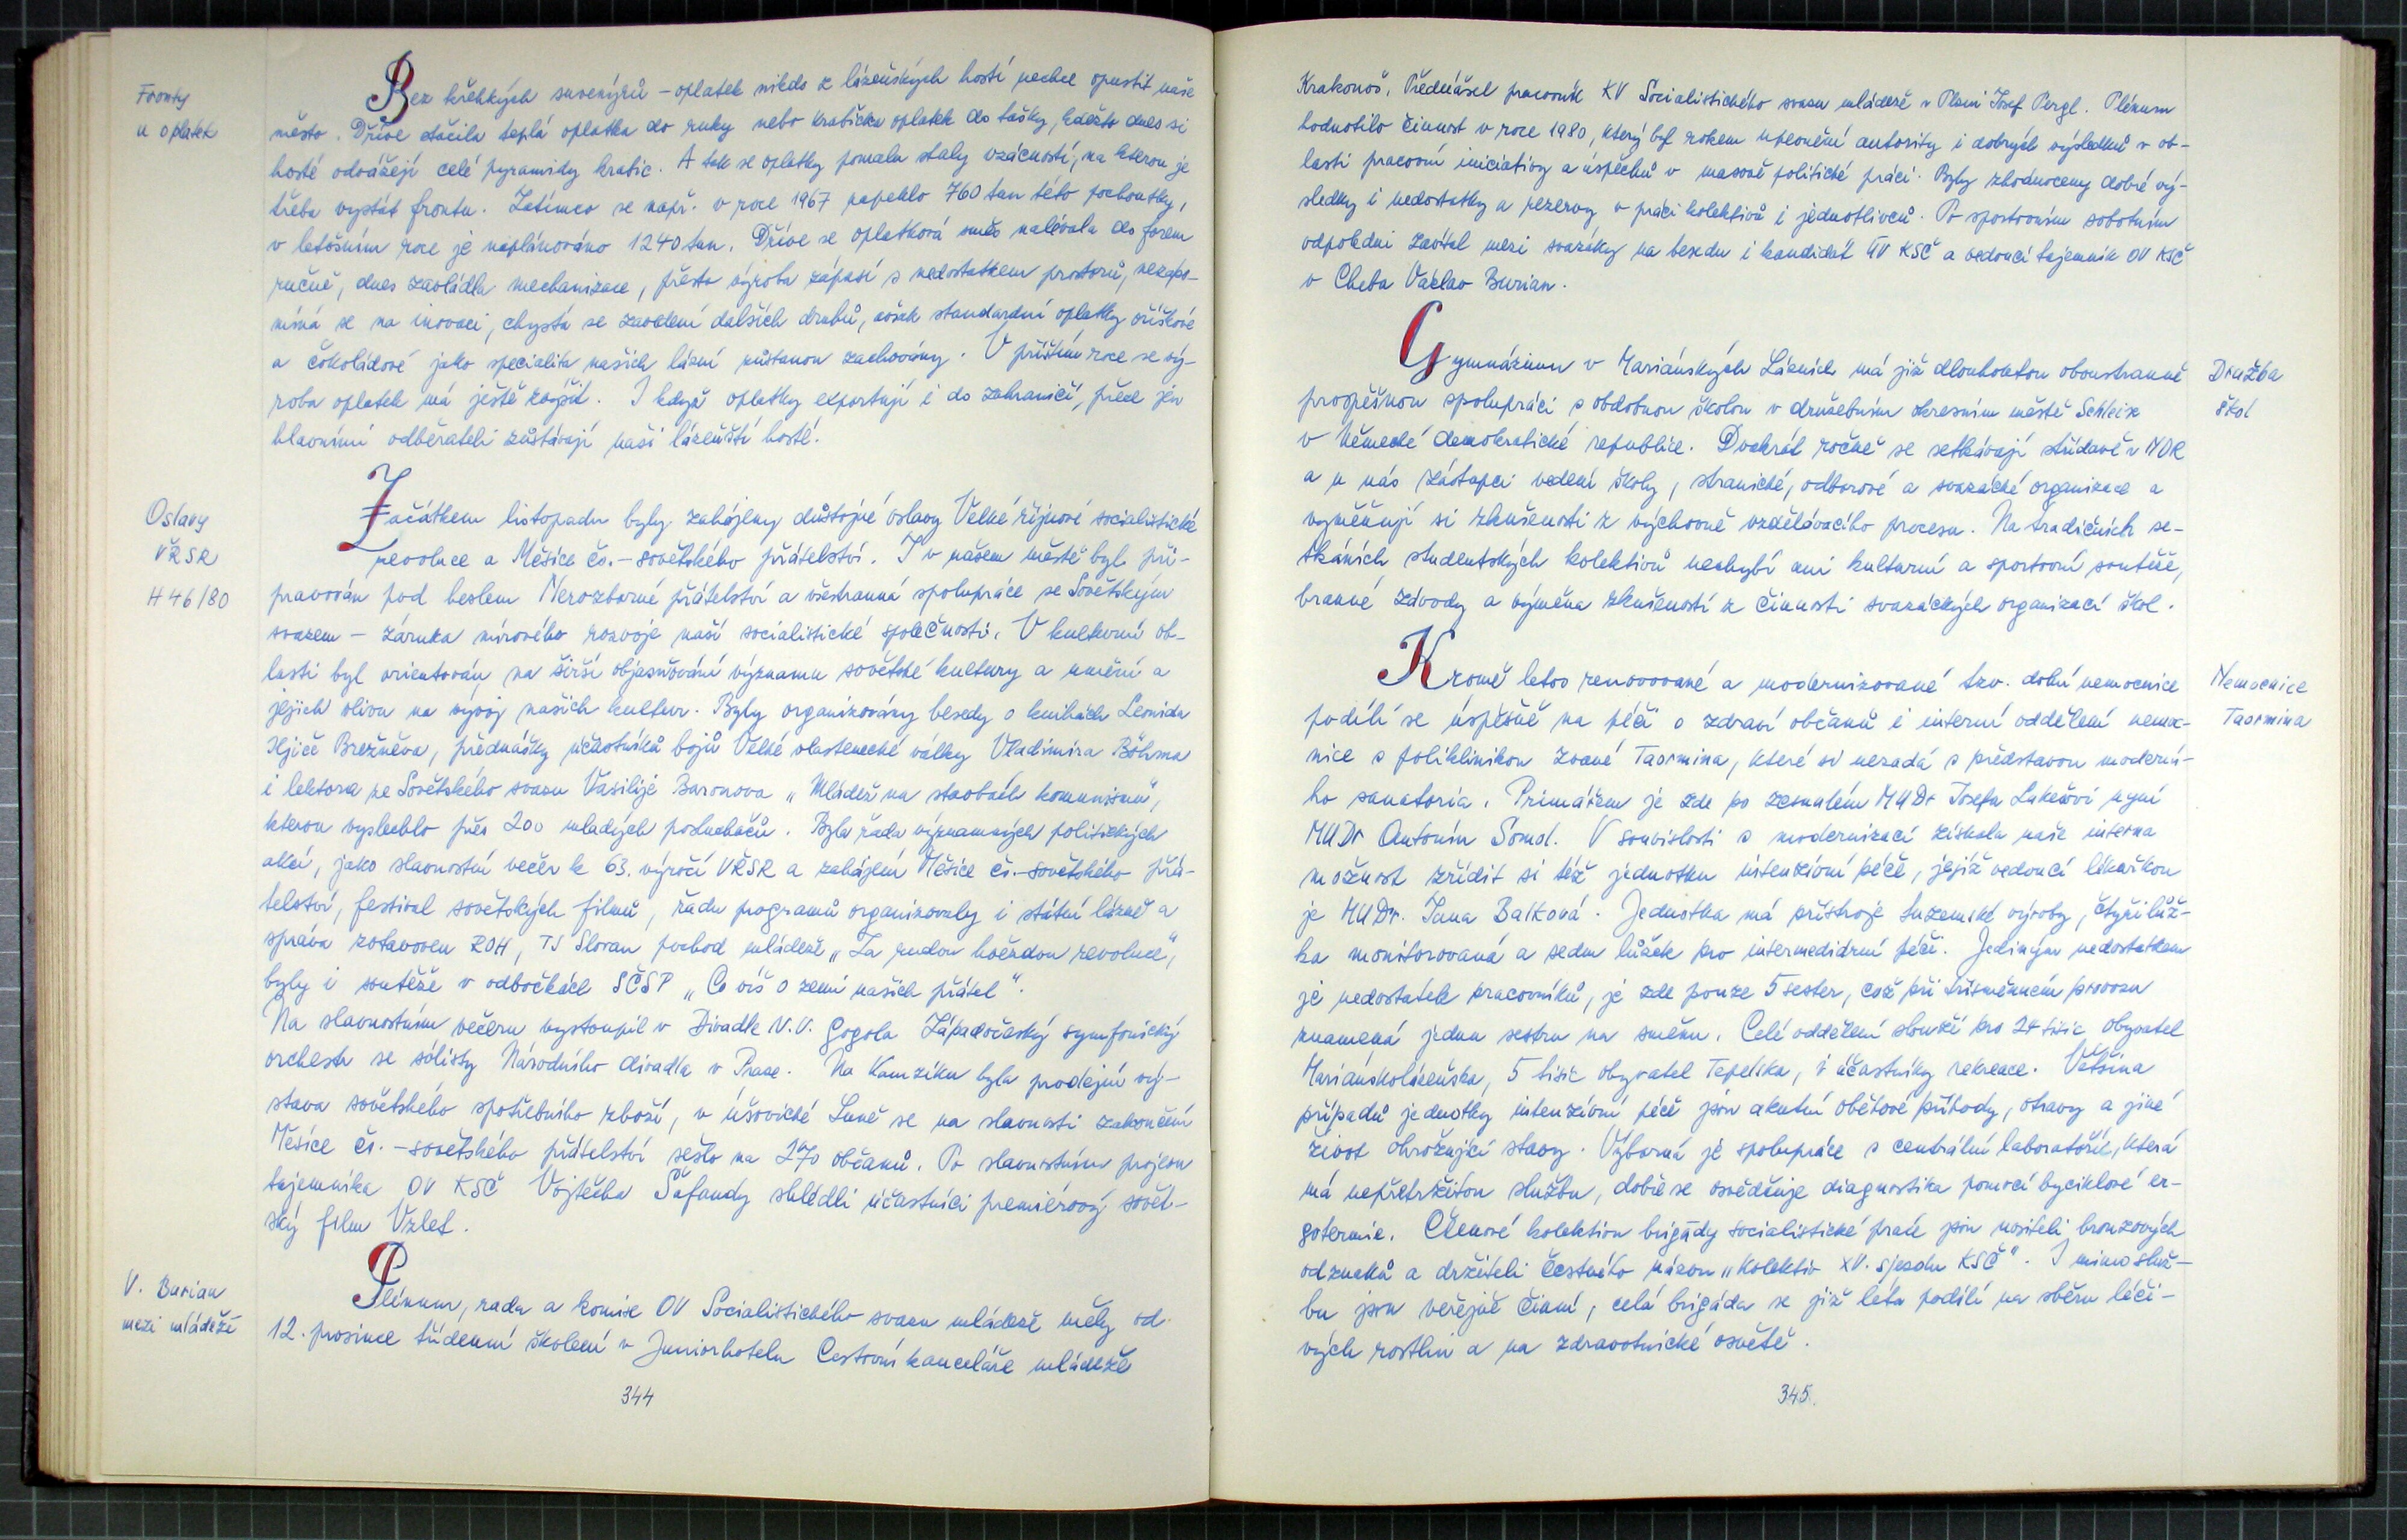 Fronty
u oplatek
Bez křehkých suvenýrů - oplatek nikdo z lázeňských hostí nechce opustit naše
město. Dříve stačila teplá oplatka do ruky nebo krabička oplatek do tašky, kdežto dnes si
hosté odvážejí celé pyramidy krabic. A tak se oplatky pomalu staly vzácností, na kterou je
třeba vystát frontu. Zatímco se např. v roce 1967 napeklo 760 tun této pochoutky,
v letošním roce je naplánováno 1240 tun. Dříve se oplatková směs nalévala do forem
ručně, dnes zavládla mechanizace, přesto výroba zápasí s nedostatkem prostorů, nezapo-
míná se na inovaci, chystá se zavedení dalších druhů, avšak standardní oplatky oříškové
a čokoládové jako specialita našich lázní zůstanou zachovány. V příštím roce se vý-
roba oplatek má ještě zvýšit. I když oplatky exportují i do zahraničí, přece jen
hlavními odběrateli zůstávají naši lázeňští hosté.
Oslavy
VŘSR
H 46/80
Začátkem listopadu byly zahájeny důstojné oslavy Velké říjnové socialistické
revoluce a Měsíce čs.-sovětského přátelství. I v našem městě byl při-
pravován pod heslem Nerozborné přátelství a všestranná spolupráce se Sovětským
svazem - záruka mírového rozvoje naší socialistické společnosti. V kulturní ob-
lasti byl orientován na širší objasňování významu sovětské kultury a umění a
jejich vlivu na vývoj našich kultur. Byly organizovány besedy o knihách Leonida
Iljiče Brežněva, přednášky účastníků bojů Velké vlastenecké války Vladimíra Böhma
i lektora ze Sovětského svazu Vasilije Baronova „Mládež na stavbách komunismu",
kterou vyslechlo přes 200 mladých posluchačů. Byla řada významných politických
akcí, jako slavnostní večer k 63. výročí VŘSR a zahájení Měsíce čs.-sovětského přá-
telství, festival sovětských filmů, řadu programů organizovaly i státní lázně a
správa zotavoven ROH, TJ Slovan pochod mládeže „Za rudou hvězdou revoluce",
byly i soutěže v odbočkách SČSP „Co víš o zemi našich přátel".
Na slavnostním večeru vystoupil v Divadle N.V. Gogola Západočeský symfonický
orchestr se sólisty Národního divadla v Praze. Na Kamzíku byla prodejní vý-
stava sovětského spotřebního zboží, v úšovické Luně se na slavnosti zakončení
Měsíce čs.-sovětského přátelství sešlo na 270 občanů. Po slavnostním projevu
tajemníka OV KSČ Vojtěcha Šafandy shlédli účastníci premiérový sovět-
ský film Vzlet.
V. Burian
mezi mládeží
Plénum, rada a komise OV Socialistického svazu mládeže měly od
12. prosince třídenní školení v Juniorhotelu Cestovní kanceláře mládeže
344
Krakonoš. Přednášel pracovník KV Socialistického svazu mládeže v Plzni Josef Pergl. Plénum
hodnotilo činnost v roce 1980, který byl rokem upevnění autority i dobrých výsledků v ob-
lasti pracovní iniciativy a úspěchů v masově politické práci. Byly zhodnoceny dobré vý-
sledky i nedostatky a rezervy v práci kolektivů i jednotlivců. Po sportovním sobotním
odpoledni zavítal mezi svazáky na besedu i kandidát ÚV KSČ a vedoucí tajemník OV KSČ
v Chebu Václav Burian.
Družba
škol
Gymnázium v Mariánských Lázních má již dlouholetou oboustranně
prospěšnou spolupráci s obdobnou školou v družebním okresním městě Schleiz
v Německé demokratické republice. Dvakrát ročně se setkávají střídavě v NDR
a u nás zástupci vedení školy, stranické, odborové a svazácké organizace a
vyměňují si zkušenosti z výchovně vzdělávacího procesu. Na tradičních se-
tkáních studentských kolektivů nechybí ani kulturní a sportovní soutěže,
branné závody a výměna zkušeností z činnosti svazáckých organizací škol.
Nemocnice
Taormina
Kromě letos renovované a modernizované tzv. dolní nemocnice
podílí se úspěšně na péči o zdraví občanů i interní oddělení nemoc-
nice s poliklinikou zvané Taormina, které si nezadá s představou moderní-
ho sanatoria. Primářem je zde po zesnulém MUDr Josefu Lukešovi nyní
MUDr Antonín Šomol. V souvislosti s modernizací získala naše interna
možnost zřídit si též jednotku intenzívní péče, jejíž vedoucí lékařkou
je MUDr. Jana Balková. Jednotka má přístroje tuzemské výroby, čtyři lůž-
ka monitorovaná a sedm lůžek pro intermediární péči. Jediným nedostatkem
je nedostatek pracovníků, je zde pouze 5 sester, což při třísměnném provozu
znamená jednu sestru na směnu. Celé oddělení slouží pro 24 tisíc obyvatel
Mariánskolázeňska, 5 tisíc obyvatel Tepelska, i účastníky rekreace. Většina
případů jednotky intenzívní péče jsou akutní oběhové příhody, otravy a jiné
život ohrožující stavy. Výborná je spolupráce s centrální laboratoří, která
má nepřetržitou službu, dobře se osvědčuje diagnostika pomocí byciklové er-
gotermie. Členové kolektivu brigády socialistické práce jsou nositeli bronzových
odznaků a držiteli čestného názvu „Kolektiv XV. sjezdu KSČ". I mimo služ-
bu jsou veřejně činní, celá brigáda se již léta podílí na sběru léči-
vých rostlin a na zdravotnické osvětě.
345.